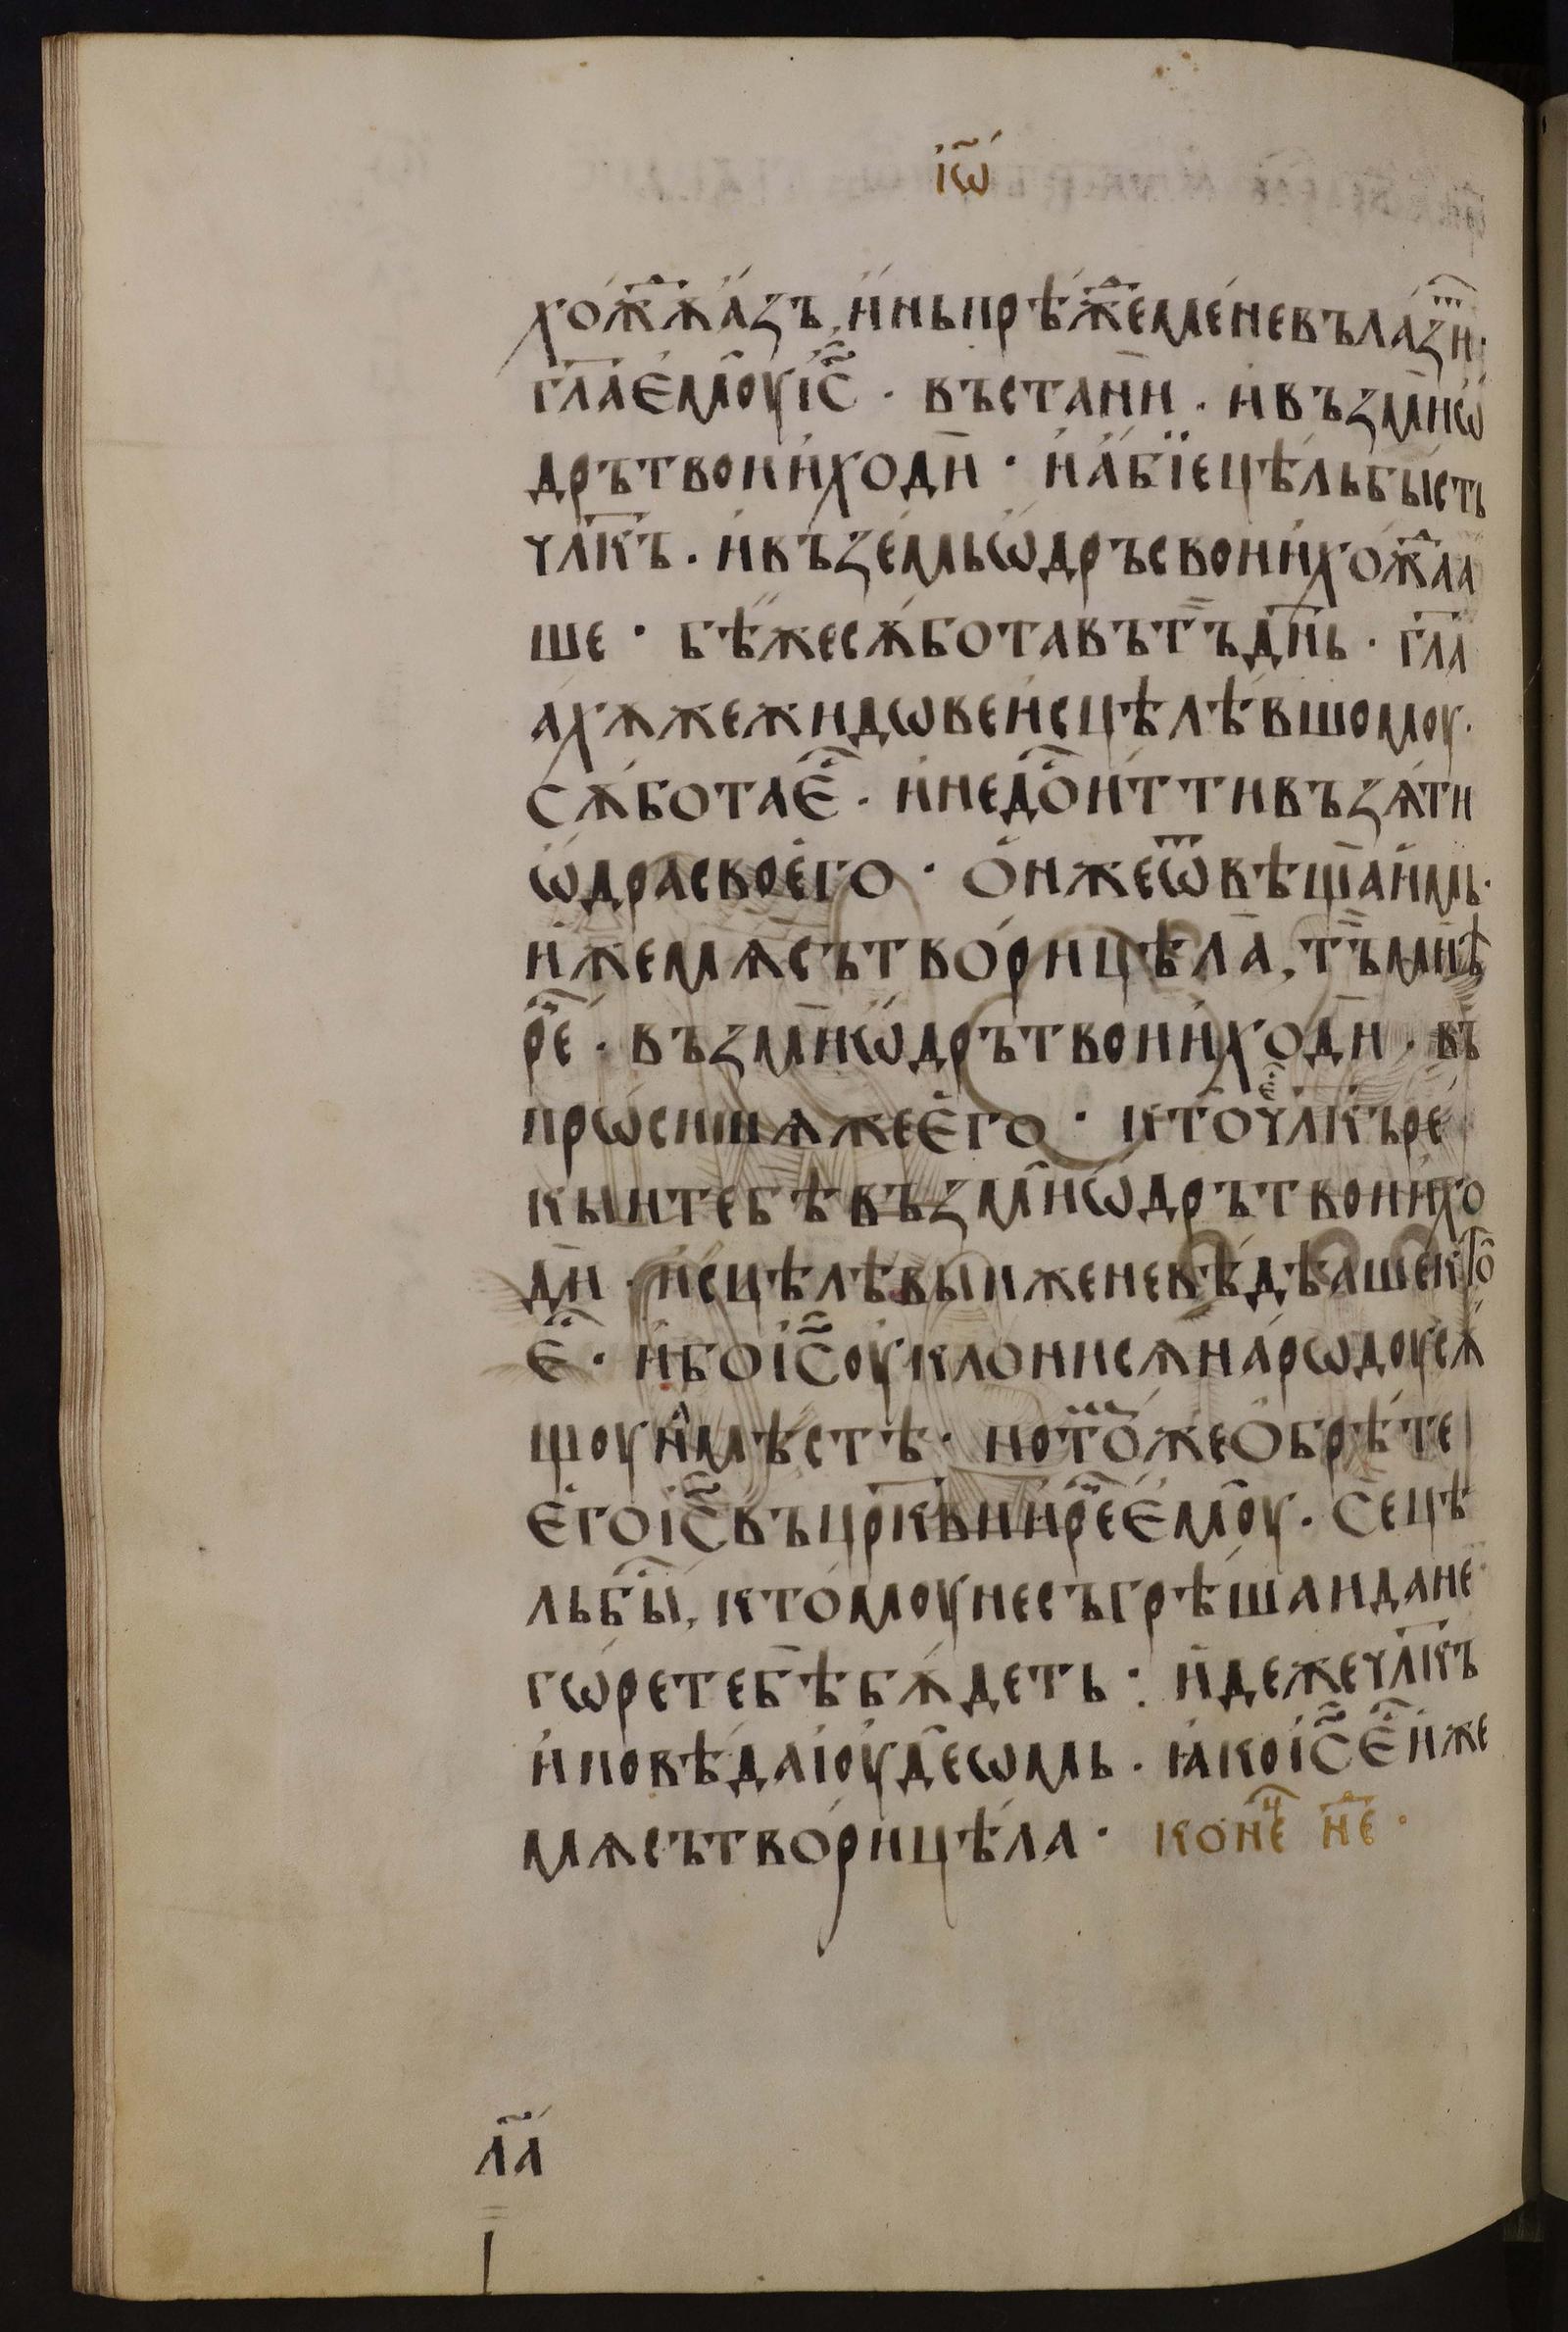 і҃ѡ
хо́ж҇дѫа́зъ, и҆́ньпрѣ́ж҇емене́въла́зи҇т·
гл҃ае҆моуі҃с · въстани · и҆възмиѡ҆
дрътвоии҆ходи · и҆а҆́бїецѣльбы́сть
чл҃къ · и҆въземьѡ҆дръсвоии҆хож҇даа
ше · бѣ́жесѫ́ботавътъдн҃ь · гл҃а
а́хѫжежидѡвеи҆сцѣлѣ́вшомоу ·
сѫ́ботае҆҇с · и҆недо҇стои́ттивъзѧ́ти
ѡ҆драсвоего̀ · ѻ҆нжеѿвѣщаи҆мь ·
и҆́жемѧсътво́рицѣла, тъмнѣ
ре҇ч · възмиѡ҆дрътвоии҆ходи · въ
прѡ́сишѧжеего̀ · ктое҇счл҃къре́
кыитебѣвъзмиѡ҆дрътвоии҆хо
ди · и҆сцѣлѣвыиженевѣ́дѣашекто
е҆҇с · и҆боі҃соуклонисѧнаро́дѡусѫ
щоунамѣстѣ · пото҇мжеѻ҆брѣ́те
е҆гоі҃свъцр҃квии҆ре҇че҆моу · сецѣ
льбы҇с, ктомоунесъгрѣ́шаидане
гѡ́ретебѣбѫ́деть : и҆дежечл҃къ
и҆повѣ́даіоуде́ѡмь · ꙗ҆коі҃се҆҇си҆же
мѧсътво́рицѣ́ла · коне҇ц не҇д ·
л҃а